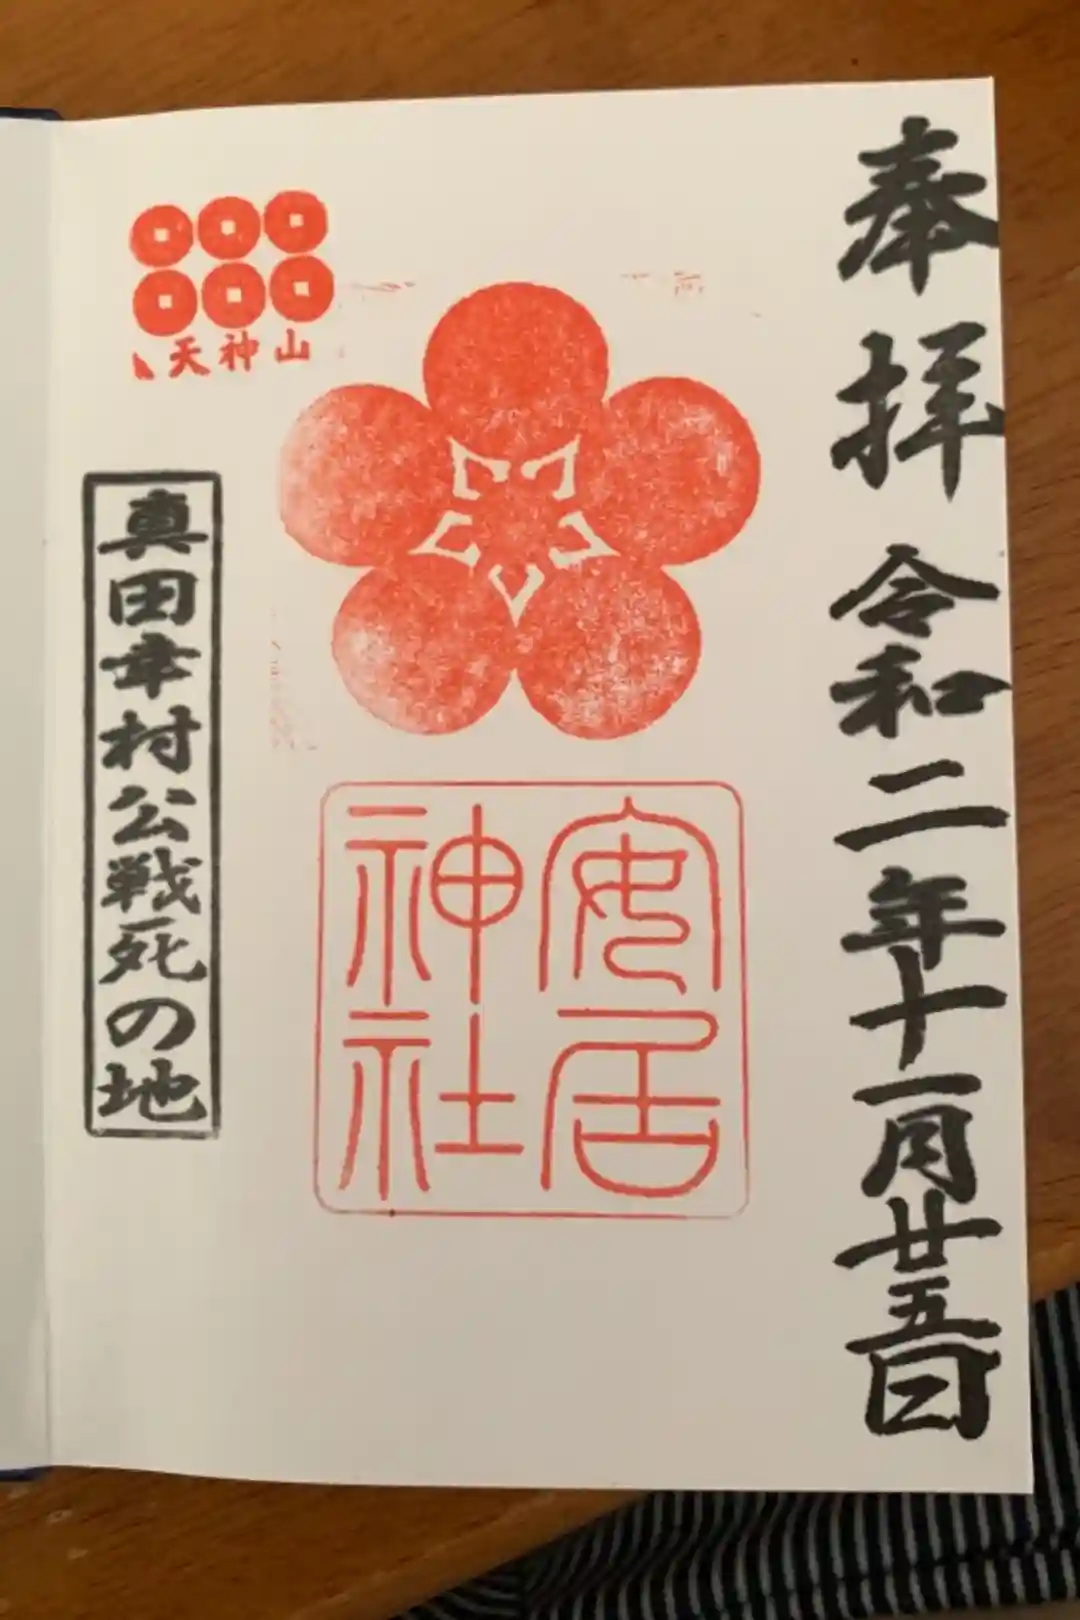 奉拝 令和二年十一月廿五日
安居
神社
天神山
真田幸村公戦死の地